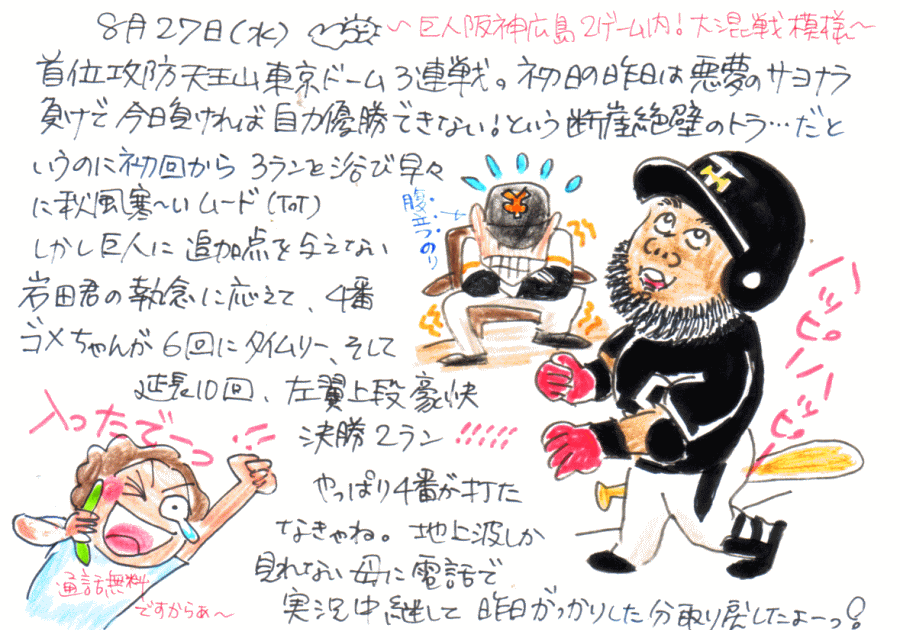 8月27日(水)
〜巨人阪神広島2ゲーム内!大混戦模様〜
首位攻防天王山東京ドーム3連戦。初日の昨日は悪夢のサヨナラ
負けで今日負ければ自力優勝できない!という断崖絶壁のトラ…だと
いうのに初回から3ランを浴び早々
に秋風寒〜いムード(ToT)
しかし巨人に追加点を与えない
岩田君の執念に応えて、4番
ゴメちゃんが6回にタイムリー、そして
延長10回、左翼上段豪快
決勝2ラン!!!!!
やっぱり4番が打た
なきゃね。地上波しか
見れない母に電話で
実況中継して昨日がっかりした分取り戻したよーっ!
腹立つのり
ハッピハッピ
入ったでーっ!!
通話無料
ですからぁ〜